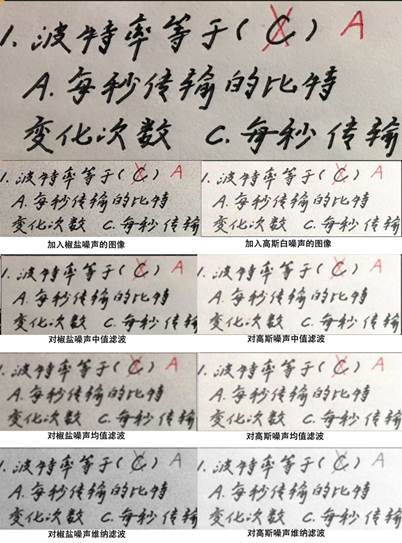 1. 波特率等于( C ) A
A. 每秒传输的比特
变化次数 C. 每秒传输
1. 波特率等于( C ) A
A. 每秒传输的比特
变化次数 C. 每秒传输
加入椒盐噪声的图像
1. 波特率等于( C ) A
A. 每秒传输的比特
变化次数 C. 每秒传输
加入高斯白噪声的图像
1. 波特率等于( C ) A
A. 每秒传输的比特
变化次数 C. 每秒传输
对椒盐噪声中值滤波
1. 波特率等于( C ) A
A. 每秒传输的比特
变化次数 C. 每秒传输
对高斯噪声中值滤波
1. 波特率等于( C ) A
A. 每秒传输的比特
变化次数 C. 每秒传输
对椒盐噪声均值滤波
1. 波特率等于( C ) A
A. 每秒传输的比特
变化次数 C. 每秒传输
对高斯噪声均值滤波
1. 波特率等于( C ) A
A. 每秒传输的比特
变化次数 C. 每秒传输
对椒盐噪声维纳滤波
1. 波特率等于( C ) A
A. 每秒传输的比特
变化次数 C. 每秒传输
对高斯噪声维纳滤波